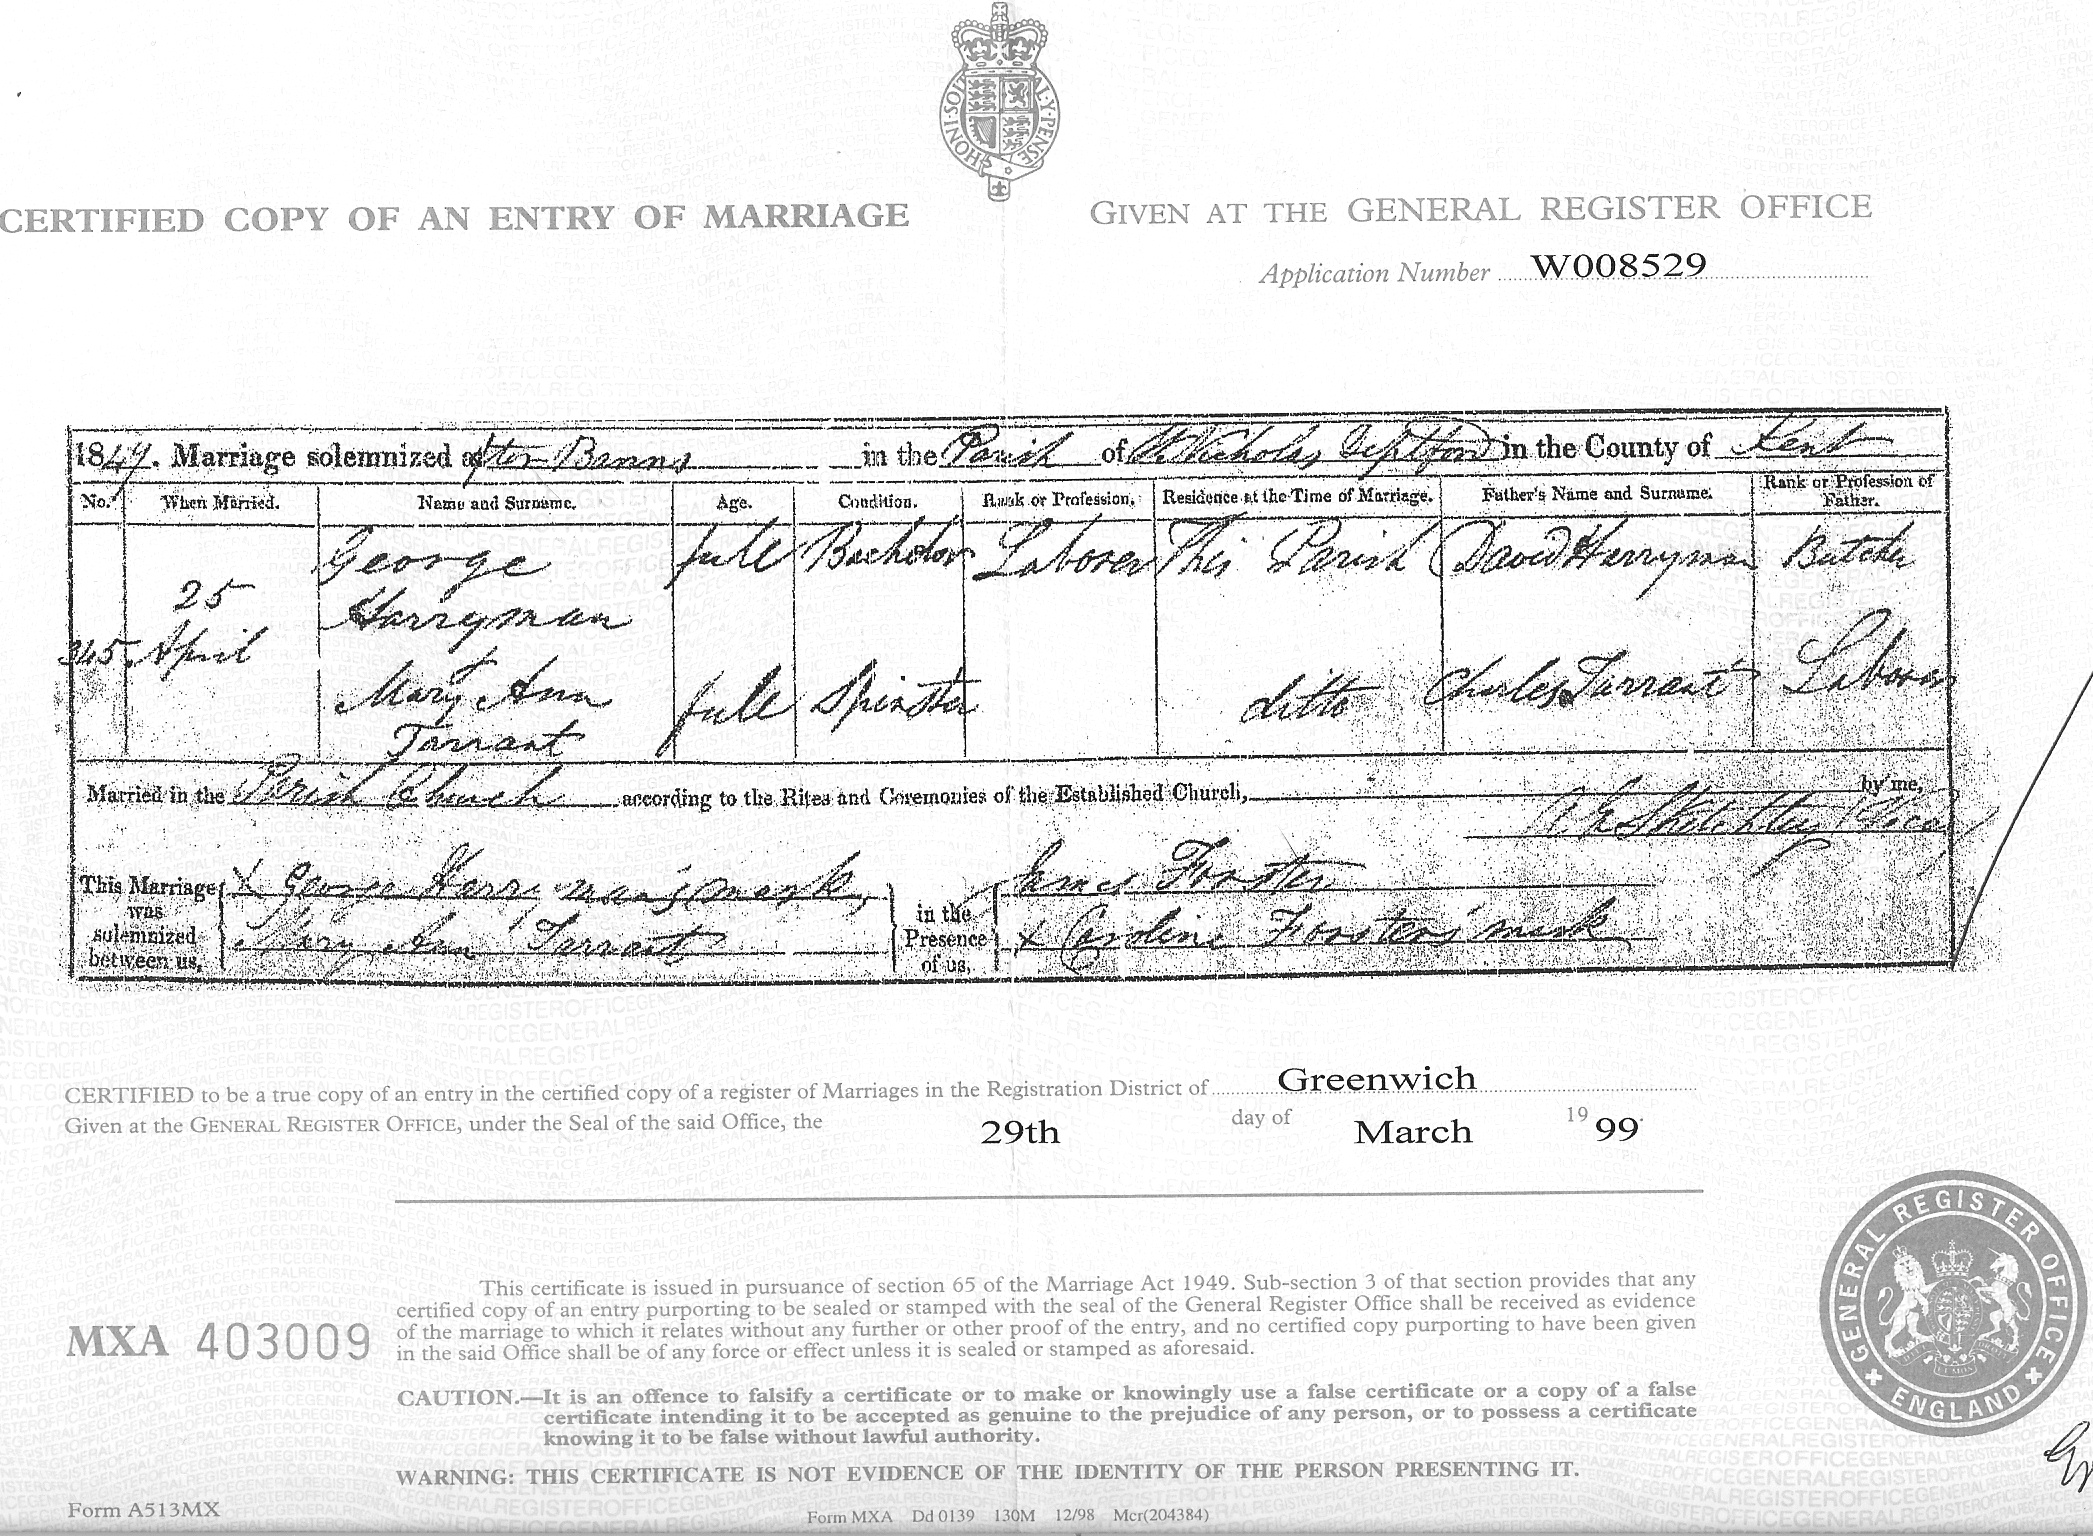 HONI·SOIT AL·Y·PENSE
CERTIFIED COPY OF AN ENTRY OF MARRIAGE
GIVEN AT THE GENERAL REGISTER OFFICE
Application Number W008529
1849. Marriage solemnized after Banns in the Parish of St. Nicholas Deptford in the County of Kent
No. When Married. Name and Surname. Age. Condition. Rank or Profession. Residence at the Time of Marriage. Father's Name and Surname. Rank or Profession of Father.
George full Bachelor Laborer This Parish David Harryman Butcher
25
Harryman
345 April
Mary Ann full Spinster ditto Charles Tarrant Laborer
Tarrant
Married in the Parish Church according to the Rites and Ceremonies of the Established Church, by me,
This Marriage was solemnized between us, X George Harryman's mark, in the Presence of us, James Forster
Mary Ann Tarrant X Caroline Forster's mark
CERTIFIED to be a true copy of an entry in the certified copy of a register of Marriages in the Registration District of Greenwich
Given at the GENERAL REGISTER OFFICE, under the Seal of the said Office, the 29th day of March 1999
This certificate is issued in pursuance of section 65 of the Marriage Act 1949. Sub-section 3 of that section provides that any
certified copy of an entry purporting to be sealed or stamped with the seal of the General Register Office shall be received as evidence
of the marriage to which it relates without any further or other proof of the entry, and no certified copy purporting to have been given
in the said Office shall be of any force or effect unless it is sealed or stamped as aforesaid.
MXA 403009
CAUTION.—It is an offence to falsify a certificate or to make or knowingly use a false certificate or a copy of a false
certificate intending it to be accepted as genuine to the prejudice of any person, or to possess a certificate
knowing it to be false without lawful authority.
WARNING: THIS CERTIFICATE IS NOT EVIDENCE OF THE IDENTITY OF THE PERSON PRESENTING IT.
GENERAL REGISTER OFFICE
ENGLAND
Form A513MX
Form MXA Dd 0139 130M 12/98 Mcr(204384)